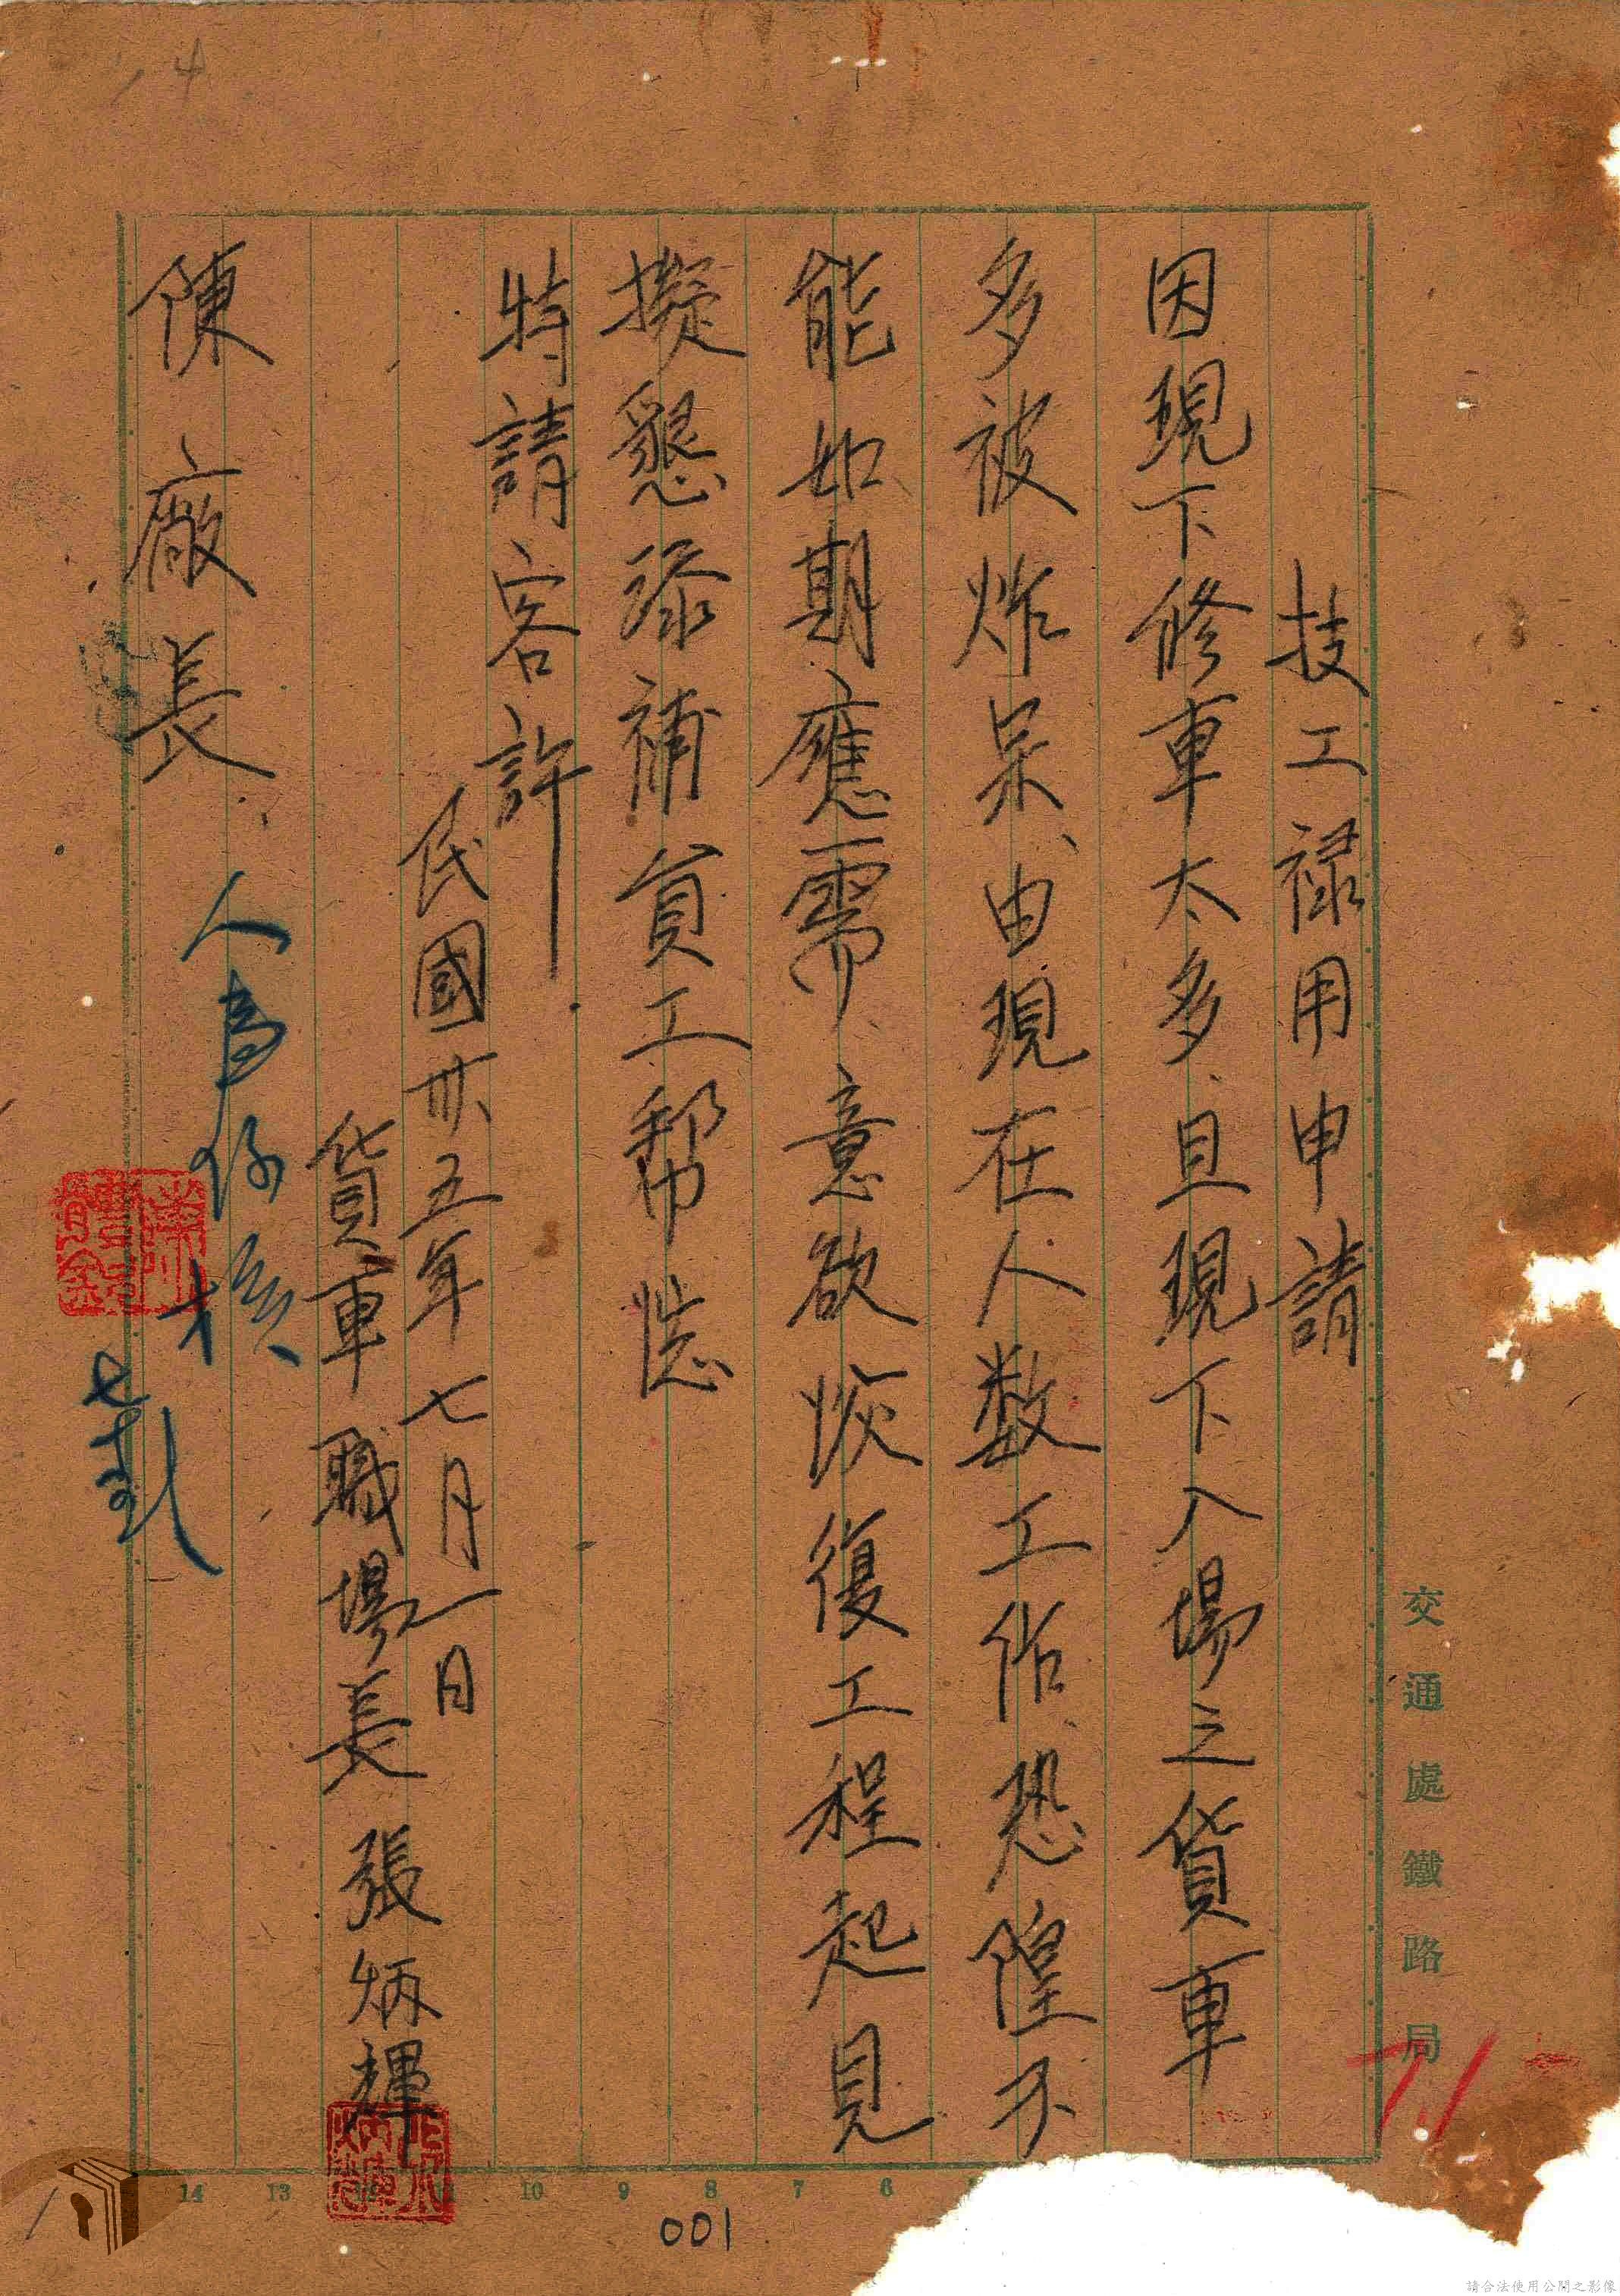 交通處鐵路局
7.1
技工祿用申請
因現下修車太多、且現下入場之貨車
多被炸呆、由現在人数工作、恐惶不
能如期應需、意欲恢復工程起見
擬懇添補員工幫忙
特請容許
民國卅五年七月一日
貨車職場長 張炳輝
陳廠長
人事係核
14 13 10 9 8 7 6
001
4
請合法使用公開之影像